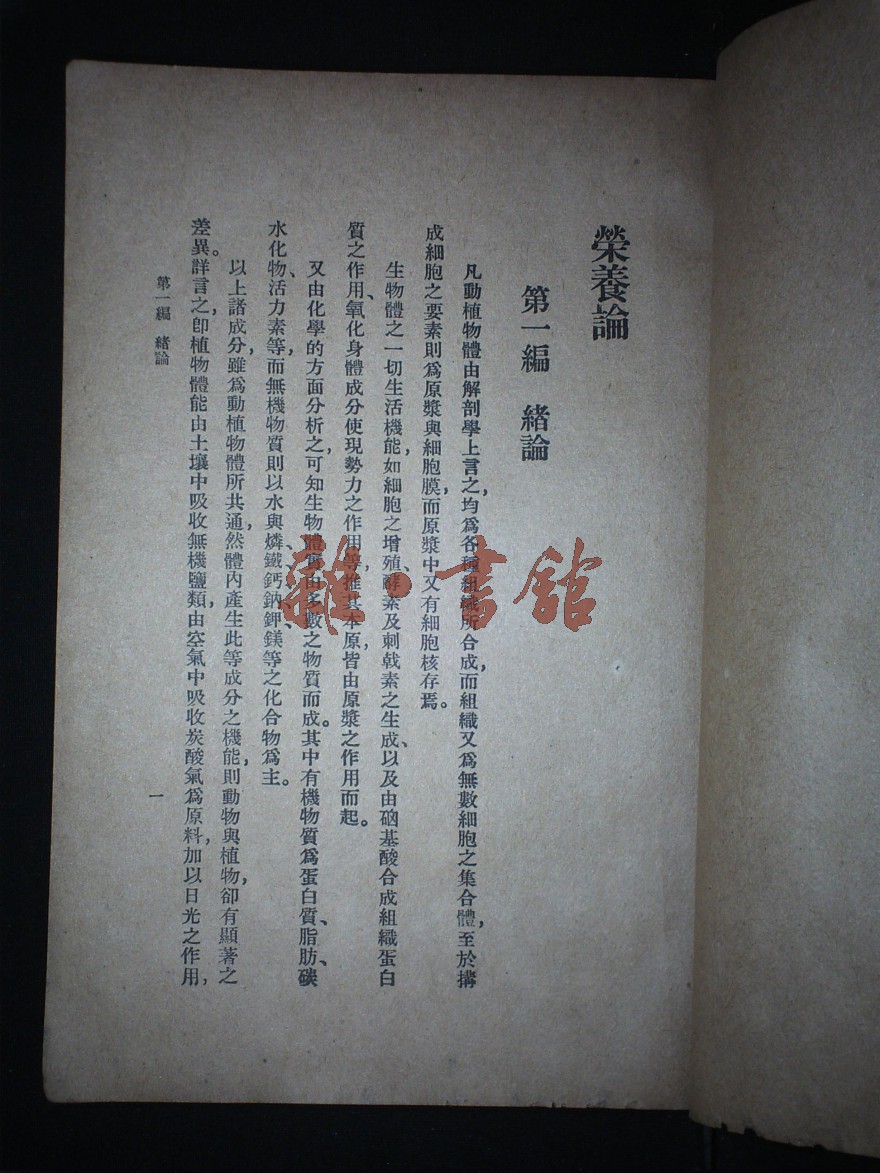 榮養論
第一編　緒論
凡動植物體由解剖學上言之，均爲各種組織所合成，而組織又爲無數細胞之集合體，至於搆
成細胞之要素則爲原漿與細胞膜，而原漿中又有細胞核存焉。
生物體之一切生活機能，如細胞之增殖、酵素及刺戟素之生成、以及由硇基酸合成組織蛋白
質之作用、氧化身體成分使現勢力之作用等，推其本原皆由原漿之作用而起。
又由化學的方面分析之，可知生物體實由多數之物質而成。其中有機物質爲蛋白質、脂肪、碳
水化物、活力素等，而無機物質則以水與燐、鐵、鈣、鈉、鉀、鎂等之化合物爲主。
以上諸成分，雖爲動植物體所共通，然體內產生此等成分之機能，則動物與植物，卻有顯著之
差異。詳言之，卽植物體能由土壤中吸收無機鹽類，由空氣中吸收炭酸氣爲原料，加以日光之作用，
第一編　緒論
一
雜·書館